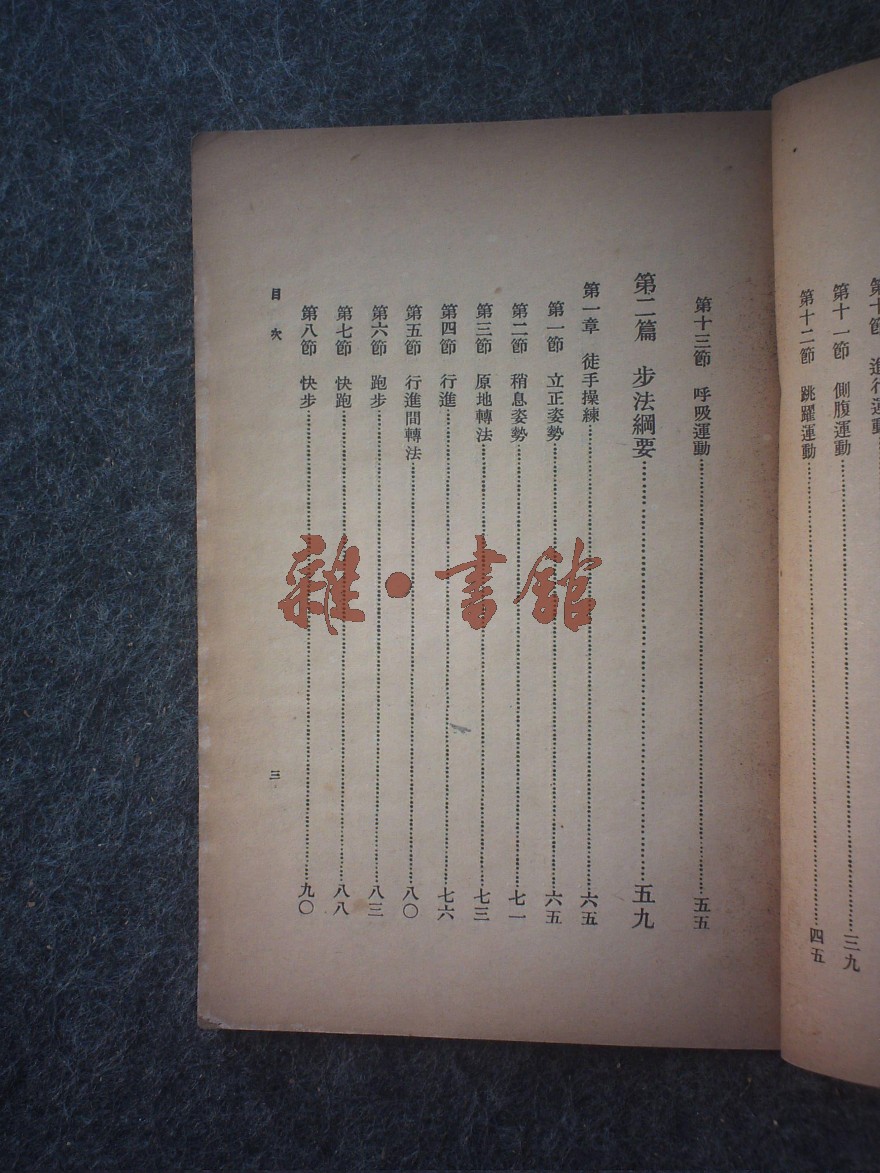 進行運動
第十一節 側腹運動……三九
第十二節 跳躍運動……四五
第十三節 呼吸運動……五五
第二篇 步法綱要……五九
第一章 徒手操練……六五
第一節 立正姿勢……六五
第二節 稍息姿勢……七一
第三節 原地轉法……七三
第四節 行進……七六
第五節 行進間轉法……八〇
第六節 跑步……八三
第七節 快跑……八八
第八節 快步……九〇
目次 三
雜·書館